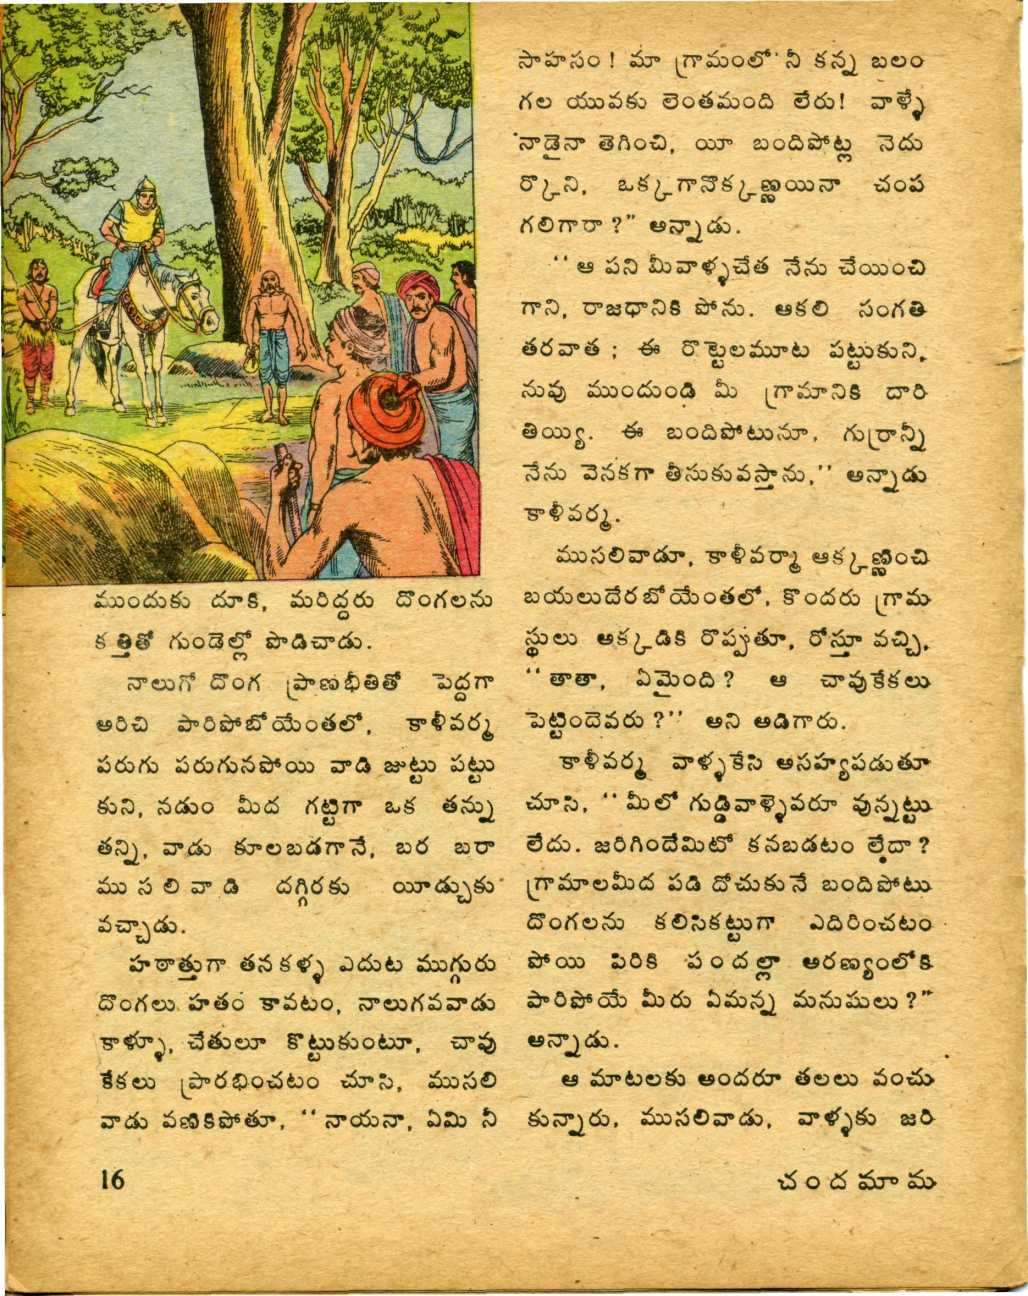 ముందుకు దూకి, మరిద్దరు దొంగలను
కత్తితో గుండెల్లో పొడిచాడు.
నాలుగో దొంగ ప్రాణభీతితో పెద్దగా
అరిచి పారిపోబోయేంతలో, కాళీవర్మ
పరుగు పరుగునపోయి వాడి జుట్టు పట్టు
కుని, నడుం మీద గట్టిగా ఒక తన్ను
తన్ని, వాడు కూలబడగానే, బర బరా
ముసలివాడి దగ్గిరకు యీడ్చుకు
వచ్చాడు.
హఠాత్తుగా తనకళ్ళ ఎదుట ముగ్గురు
దొంగలు హతం కావటం, నాలుగవవాడు
కాళ్ళూ, చేతులూ కొట్టుకుంటూ, చావు
కేకలు ప్రారభించటం చూసి, ముసలి
వాడు వణికిపోతూ, ‘‘నాయనా, ఏమి నీ
సాహసం! మా గ్రామంలో నీ కన్న బలం
గల యువకు లెంతమంది లేరు! వాళ్ళే
నాడైనా తెగించి, యీ బందిపోట్ల నెదు
ర్కొని, ఒక్కగానొక్కణ్ణయినా చంప
గలిగారా?’’ అన్నాడు.
‘‘ఆ పని మీవాళ్ళచేత నేను చేయించి
గాని, రాజధానికి పోను. ఆకలి సంగతి
తరవాత; ఈ రొట్టెలమూట పట్టుకుని,
నువు ముందుండి మీ గ్రామానికి దారి
తియ్యి. ఈ బందిపోటునూ, గుర్రాన్నీ
నేను వెనకగా తీసుకువస్తాను,’’ అన్నాడు
కాళీవర్మ.
ముసలివాడూ, కాళీవర్మా ఆక్కణ్ణించి
బయలుదేరబోయేంతలో, కొందరు గ్రామ
స్థులు అక్కడికి రొప్పుతూ, రోస్తూ వచ్చి,
‘‘తాతా, ఏమైంది? ఆ చావుకేకలు
పెట్టిందెవరు?’’ అని అడిగారు.
కాళీవర్మ వాళ్ళకేసి అసహ్యపడుతూ
చూసి, ‘‘మీలో గుడ్డివాళ్ళెవరూ వున్నట్టు
లేదు. జరిగిందేమిటో కనబడటం లేదా?
గ్రామాలమీద పడి దోచుకునే బందిపోటు
దొంగలను కలిసికట్టుగా ఎదిరించటం
పోయి పిరికి పందల్లా అరణ్యంలోకి
పారిపోయే మీరు ఏమన్న మనుషులు?’’
అన్నాడు.
ఆ మాటలకు అందరూ తలలు వంచు
కున్నారు, ముసలివాడు, వాళ్ళకు జరి
16
చందమామ